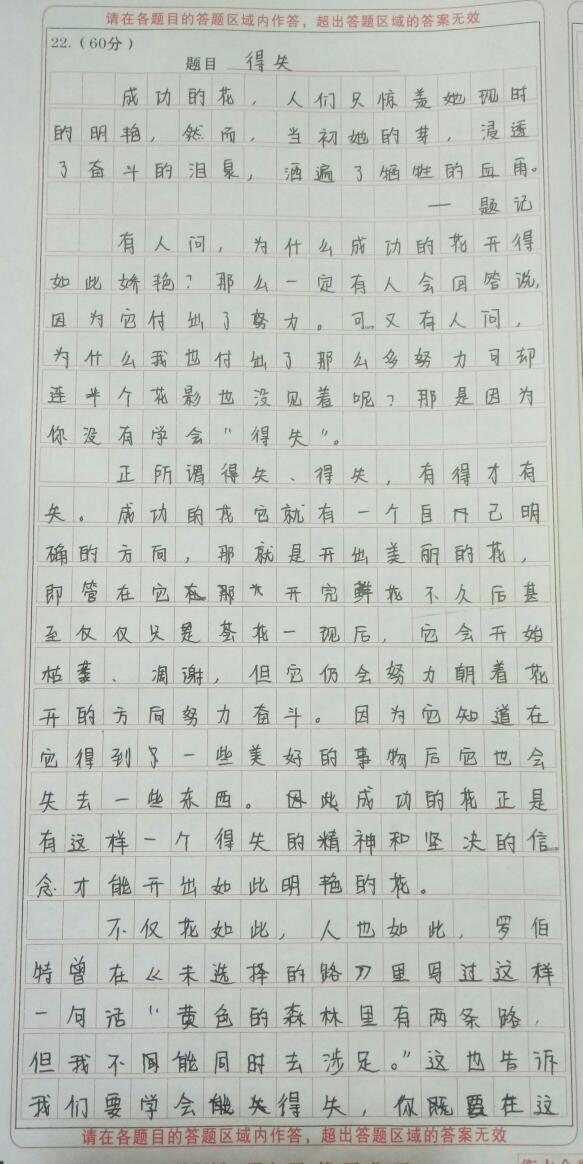 请在各题目的答题区域内作答，超出答题区域的答案无效
22.（60分）
题目 得失
成功的花，人们只惊羡她现时
的明艳，然而，当初她的芽，浸透
了奋斗的泪泉，洒遍了牺牲的血雨。
— 题记
有人问，为什么成功的花开得
如此娇艳？那么一定有人会回答说，
因为它付出了努力。可又有人问，
为什么我也付出了那么多努力可却
连半个花影也没见着呢？那是因为
你没有学会“得失”。
正所谓得失、得失，有得才有
失。成功的花它就有一个自己明
确的方向，那就是开出美丽的花，
即管在它那开完鲜花不久后甚
至仅仅只是昙花一现后，它会开始
枯萎、凋谢，但它仍会努力朝着花
开的方向努力奋斗。因为它知道在
它得到了一些美好的事物后它也会
失去一些东西。因此成功的花正是
有这样一个得失的精神和坚决的信
念才能开出如此明艳的花。
不仅花如此，人也如此，罗伯
特曾在《未选择的路》里写过这样
一句话“黄色的森林里有两条路，
但我不能同时去涉足。”这也告诉
我们要学会得失，你既要在这
请在各题目的答题区域内作答，超出答题区域的答案无效